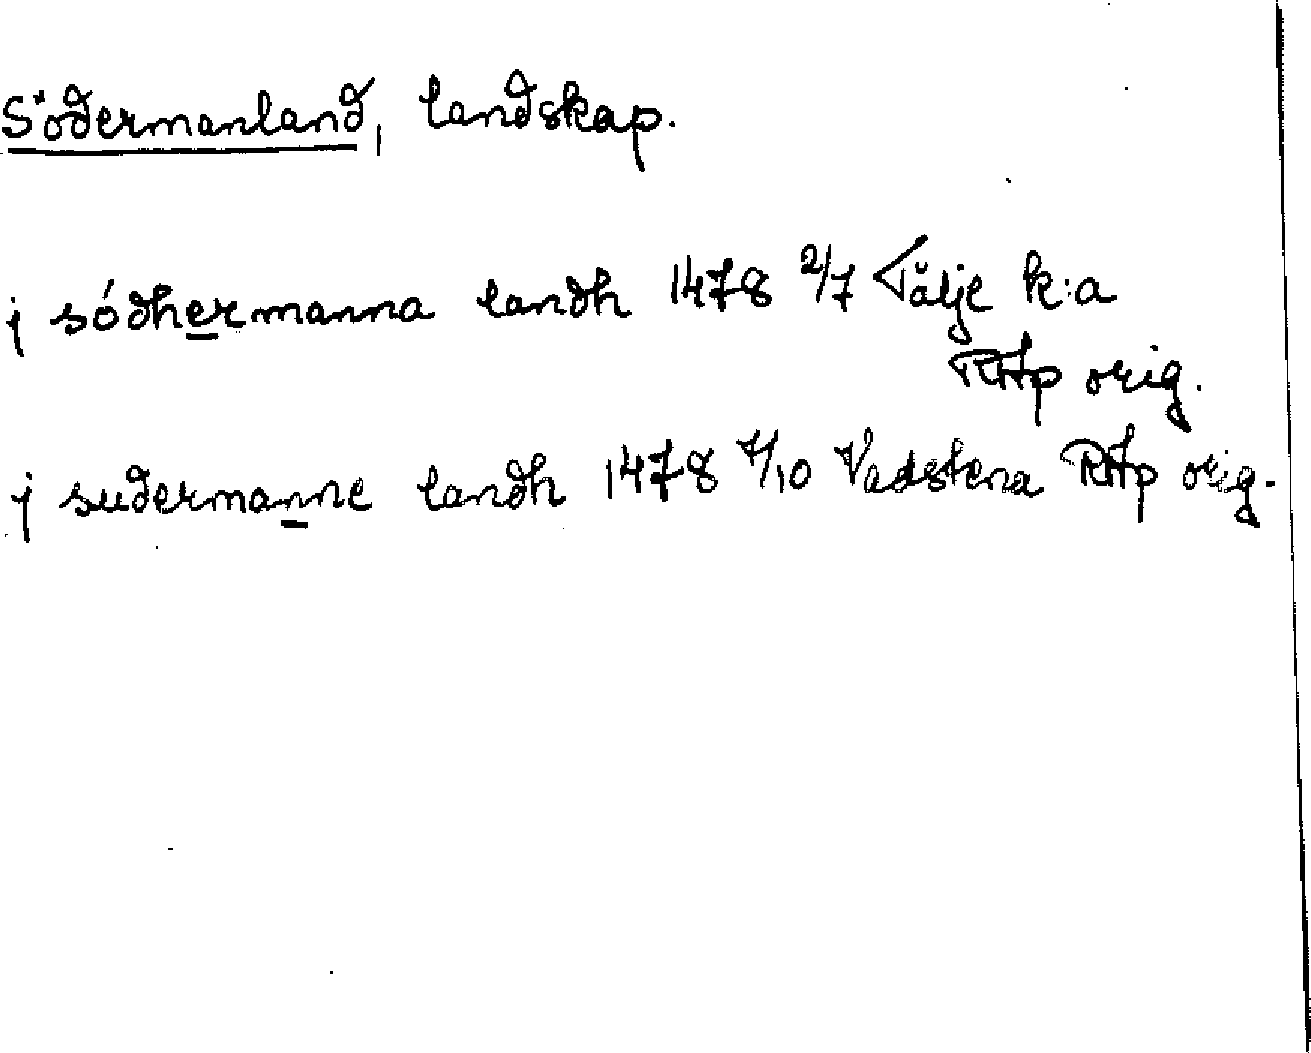 Södermanland, landskap.
j södhermanna landh 1478 2/7 Tälje k:a
RAp orig.
j sudermanne landh 1478 4/10 Vadstena RAp orig.